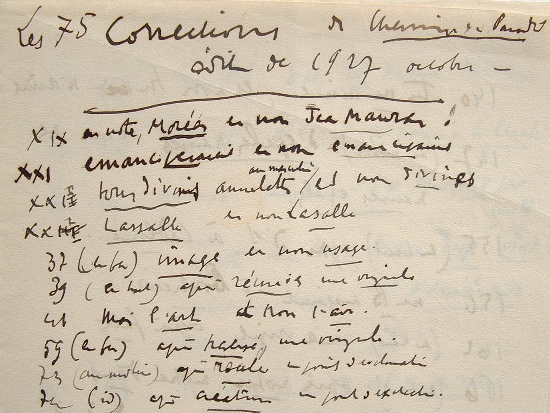 Les 75 Corrections de Chemin de Paradis
édit de 1927 octobre —
XIX en note, Moréas et non Jea Maurras !
XXI émanciperaient et non émancipaient
XXII tous divins annelets (au masculin) et non divines
XXIII Lassalle et non Lasalle
37 (en bas) image et non usage.
39 (en haut) après réunies une virgule
41 Moi l'art et non l'air.
59 (en bas) après une virgule.
73 (au milieu) après roule un point d'exclamation
74 (id) après création un point d'exclamation.